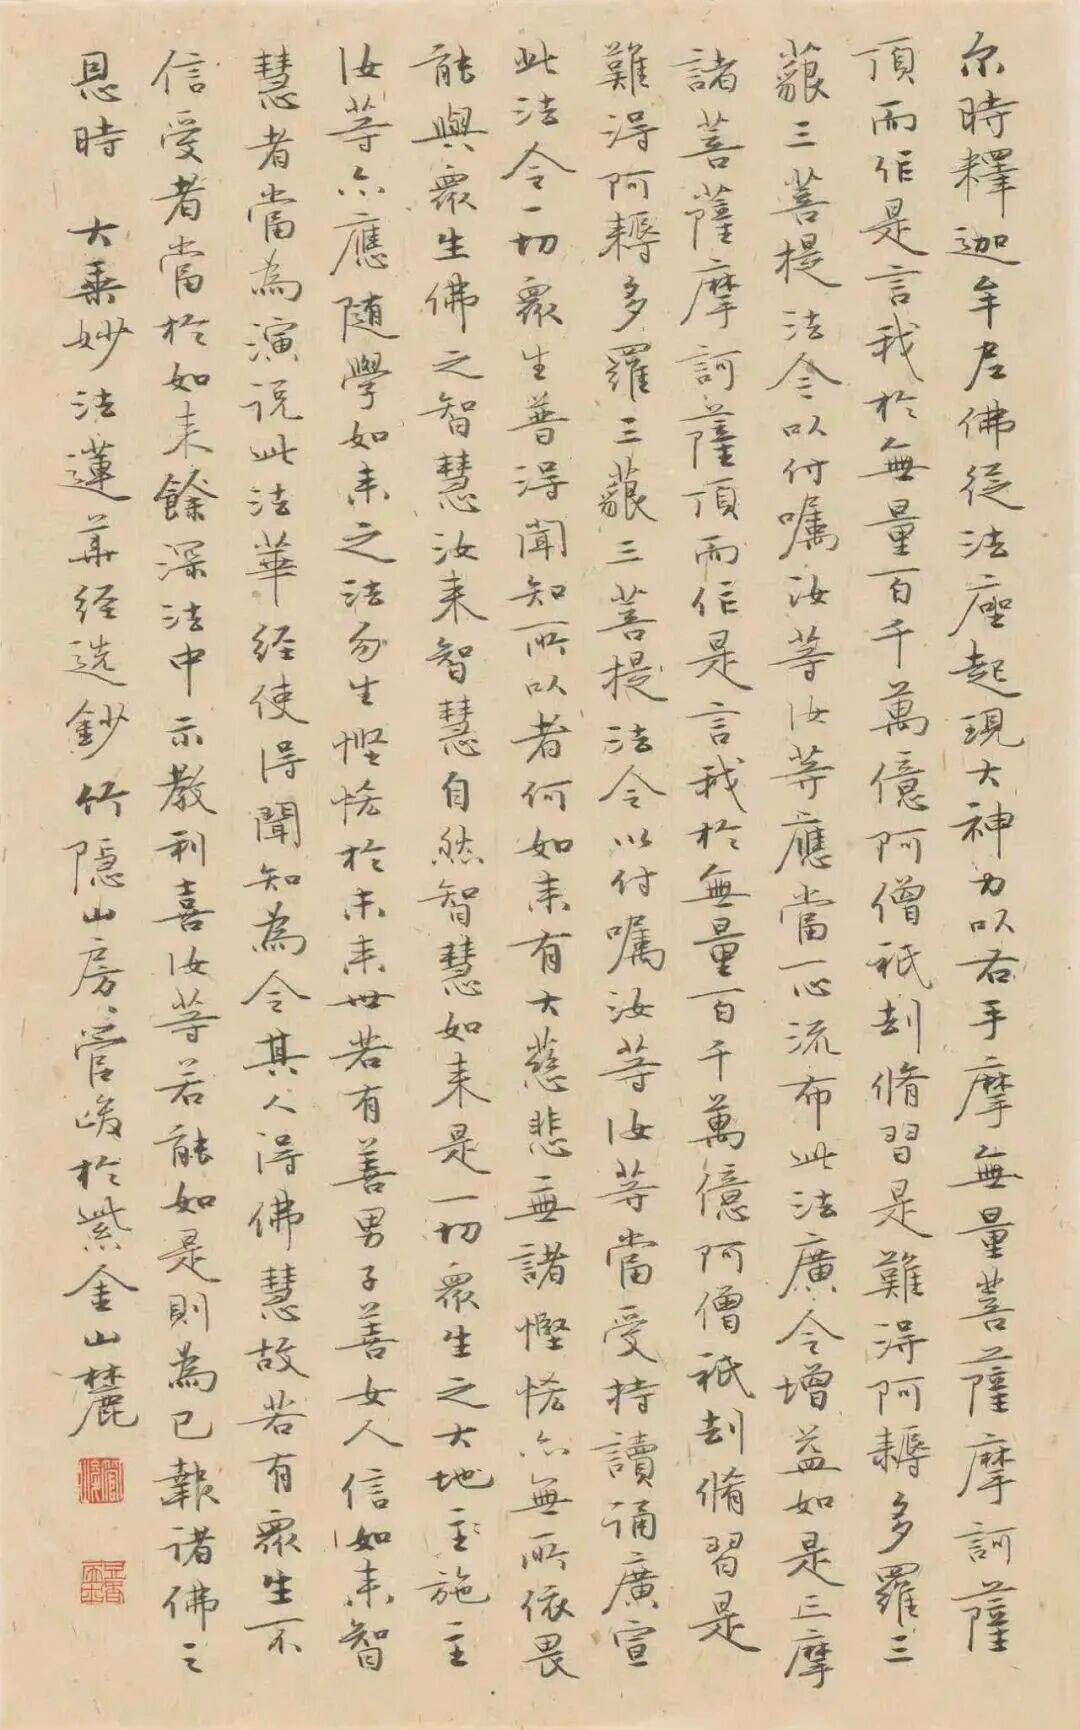 尔時釋迦牟尼佛從法座起現大神力以右手摩無量菩薩摩訶薩
頂而作是言我於無量百千萬億阿僧祇劫脩習是難得阿耨多羅三
藐三菩提法今以付嘱汝等汝等應當一心流布此法廣令增益如是三摩
諸菩薩摩訶薩頂而作是言我於無量百千萬億阿僧祇劫脩習是
難得阿耨多羅三藐三菩提法今以付嘱汝等汝等當受持讀誦廣宣
此法令一切眾生普得聞知所以者何如来有大慈悲無諸慳悋亦無所依畏
能與眾生佛之智慧汝来智慧自然智慧如来是一切眾生之大地主施主
汝等亦應随學如来之法勿生慳悋於未来世若有善男子善女人信如来智
慧者當為演说此法華经使得聞知為令其人得佛慧故若有眾生不
信受者當於如来餘深法中示教利喜汝等若能如是則為已報诸佛之
恩時 大乘妙法蓮華经选鈔竹隱山房管峻於紫金山麓